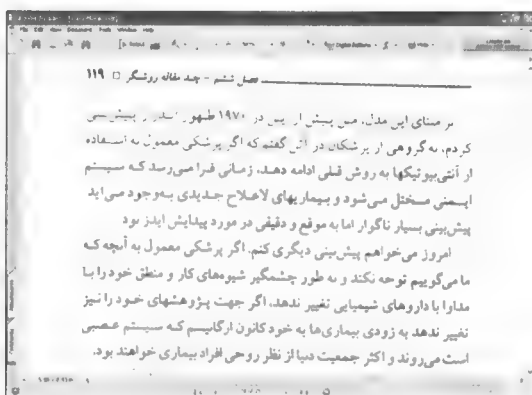 File Edit View Document Tools Window Help
فصل ششم - چند مقاله روشنگر □ ۱۱۹
بر مبنای این مدل، من پیش از این در ۱۹۷۰ ظهور ایدز را پیش‌بینی
کردم، به گروهی از پزشکان در آتن گفتم که اگر پزشکی معمول به استفاده
از آنتی‌بیوتیکها به روش قبلی ادامه دهد، زمانی فرا می‌رسد که سیستم
ایمنی مختل می‌شود و بیماریهای لاعلاج جدیدی به‌وجود می‌آید
پیش‌بینی بسیار ناگوار اما به موقع و دقیقی در مورد پیدایش ایدز بود
امروز می‌خواهم پیش‌بینی دیگری کنم. اگر پزشکی معمول به آنچه که
ما می‌گوییم توجه نکند و به طور چشمگیر شیوه‌های کار و منطق خود را با
مداوا با داروهای شیمیایی تغییر ندهد، اگر جهت پژوهشهای خود را نیز
تغییر ندهد به زودی بیماری‌ها به خود کانون ارگانیسم که سیستم عصبی
است می‌روند و اکثر جمعیت دنیا از نظر روحی افراد بیماری خواهند بود.